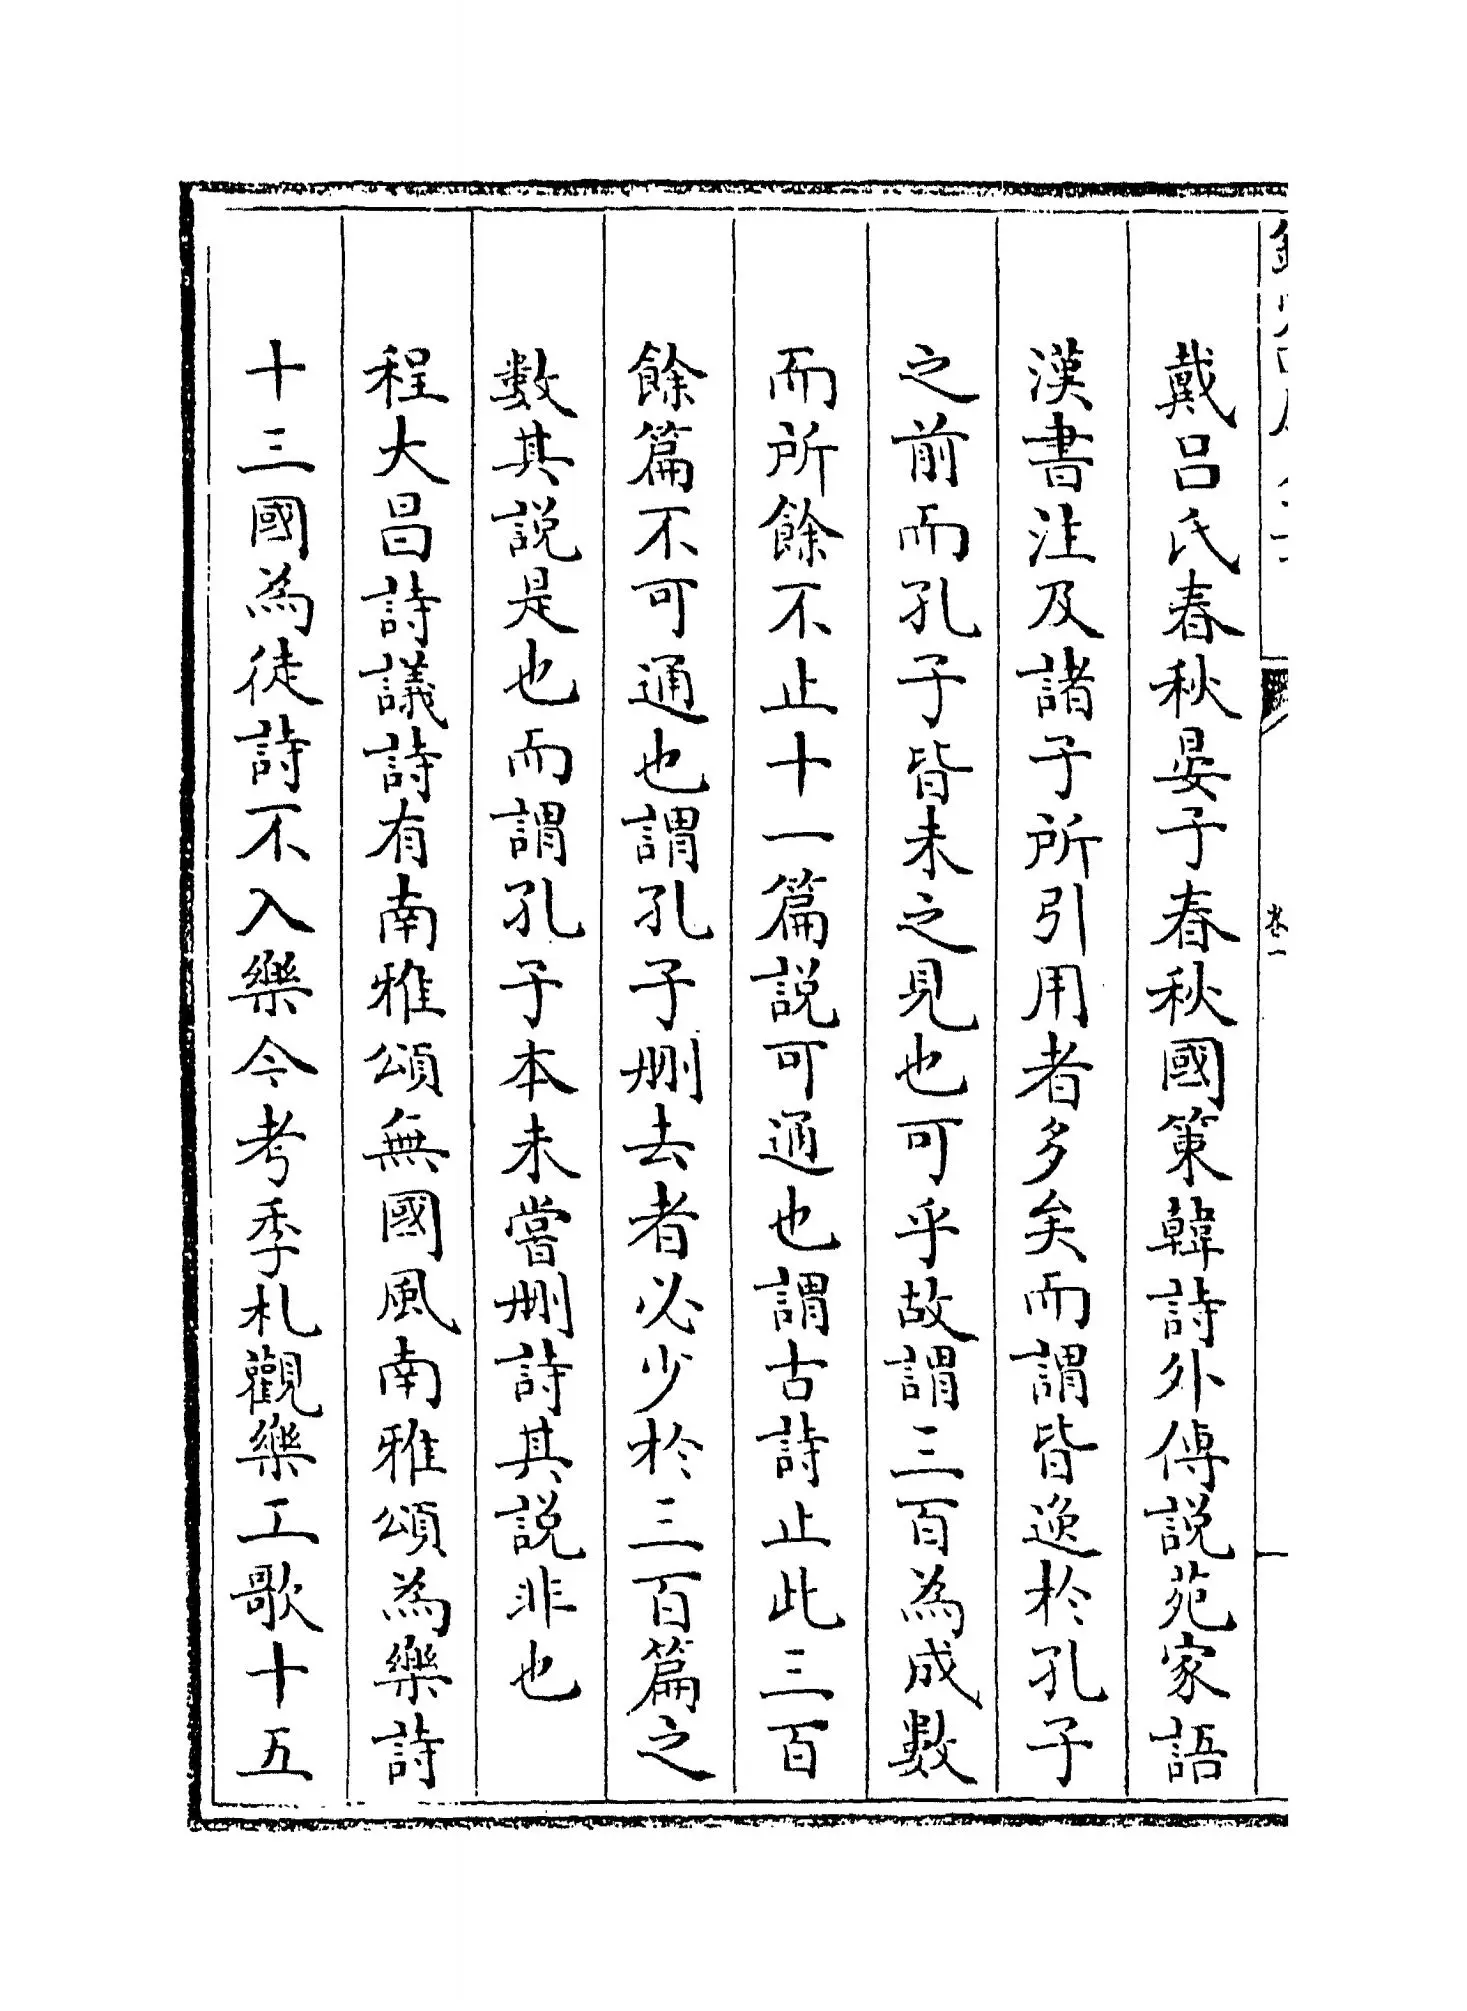 戴吕氏春秋晏子春秋國策韓詩外傳説苑家語
漢書注及諸子所引用者多矣而謂皆逸於孔子
之前而孔子皆未之見也可乎故謂三百為成數
而所餘不止十一篇説可通也謂古詩止此三百
餘篇不可通也謂孔子刪去者必少於三百篇之
數其説是也而謂孔子本未嘗刪詩其説非也
程大昌詩議詩有南雅頌無國風南雅頌為樂詩
十三國為徒詩不入樂今考季札觀樂工歌十五
卷一